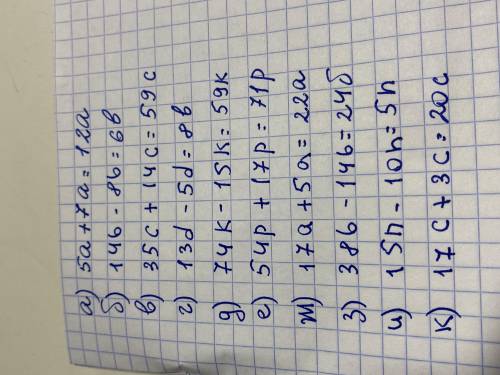 а) 5a+7a=12a
б) 14b-8b=6b
в) 35c+14c=59c
г) 13d-5d=8b
д) 74k-15k=59k
е) 54p+17p=71p
ж) 17a+5a=22a
з) 38b-14b=24б
и) 15n-10n=5n
к) 17c+3c=20c